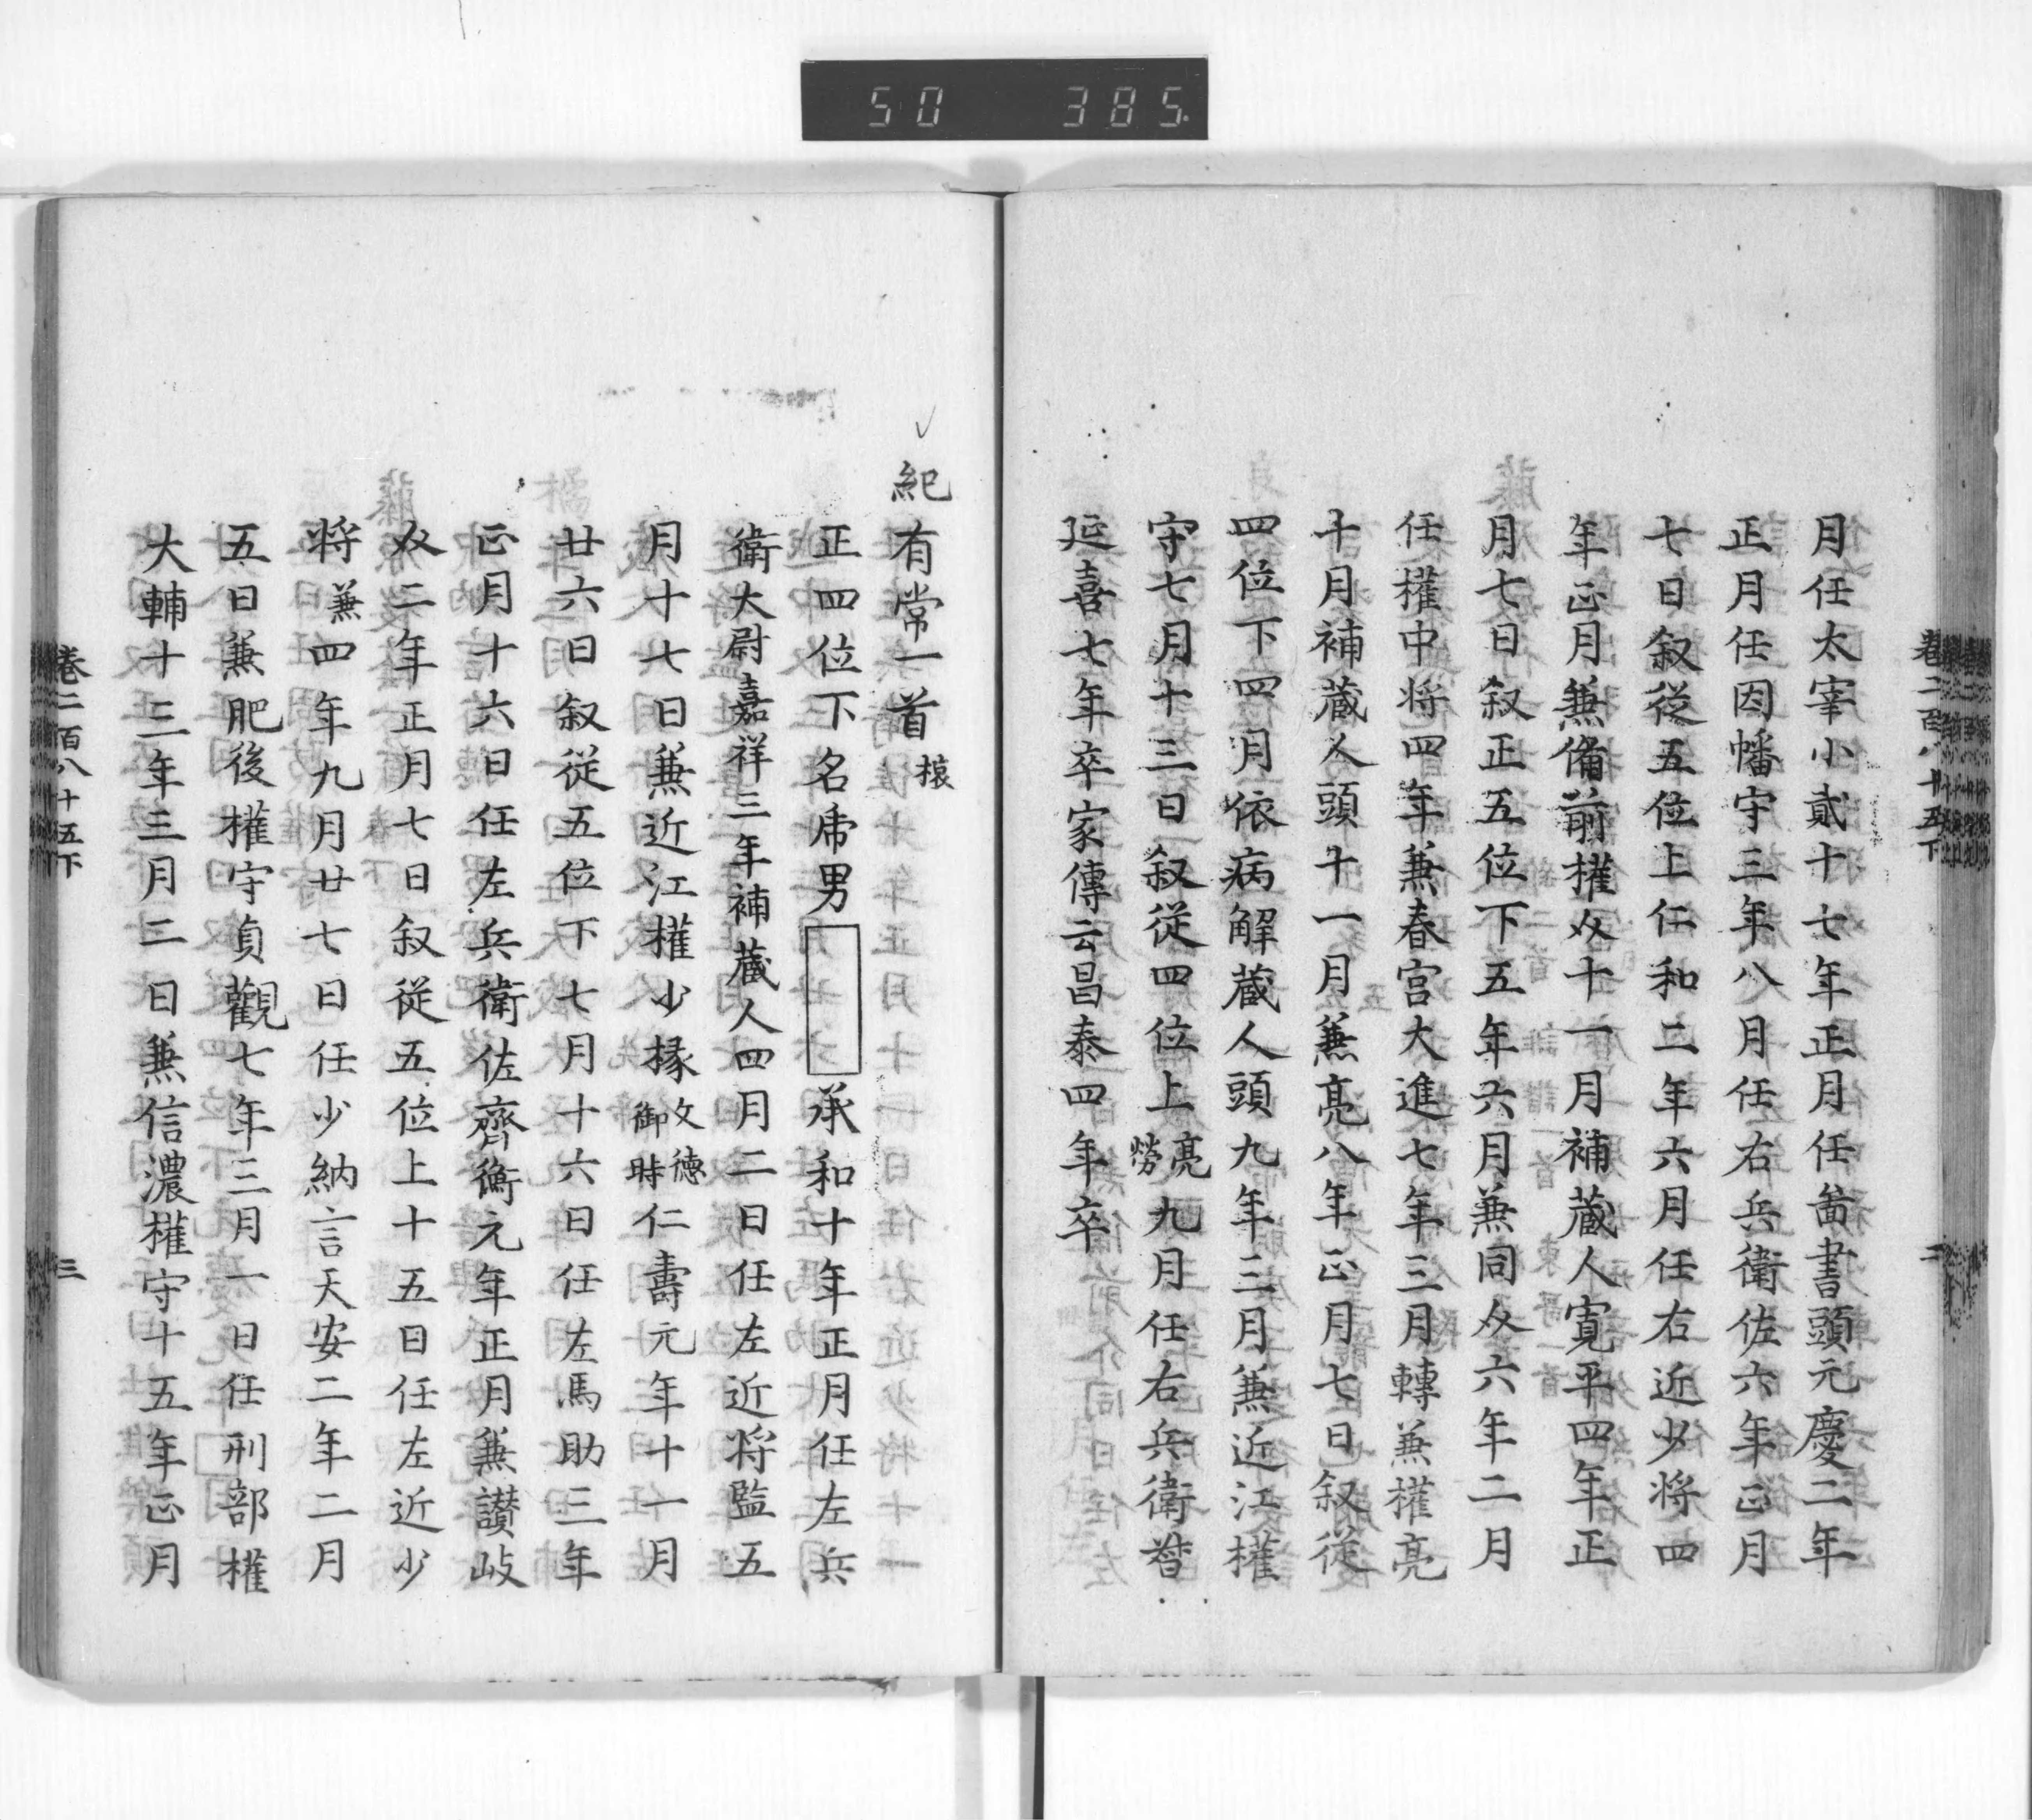 50 385
卷二百八十五下 二
月任太宰小貳十七年正月任啚書頭元慶二年
正月任因幡守三年八月任右兵衛佐六年正月
七日叙從五位上仁和二年六月任右近少将四
年正月兼備前權介十一月補蔵人寛平四年正
月七日叙正五位下五年六月兼同介六年二月
任權中将四年兼春宮大進七年三月轉兼權亮
十月補蔵人頭十一月兼亮八年正月七日叙從
四位下四月依病解蔵人頭九年三月兼近江權
守七月十三日叙從四位上亮勞九月任右兵衛督
延喜七年卒家傳云昌泰四年卒
紀有常一首
正四位下名席男 承和十年正月任左兵
衛大尉嘉祥三年補蔵人四月二日任左近将監五
月十七日兼近江權少掾文德御時仁壽元年十一月
廿六日叙從五位下七月十六日任左馬助三年
正月十六日任左兵衛佐齊衡元年正月兼讃岐
介二年正月七日叙從五位上十五日任左近少
将兼四年九月廿七日任少納言天安二年二月
五日兼肥後權守貞觀七年三月一日任刑部權
大輔十三年三月二日兼信濃權守十五年正月
卷二百八十五下 三